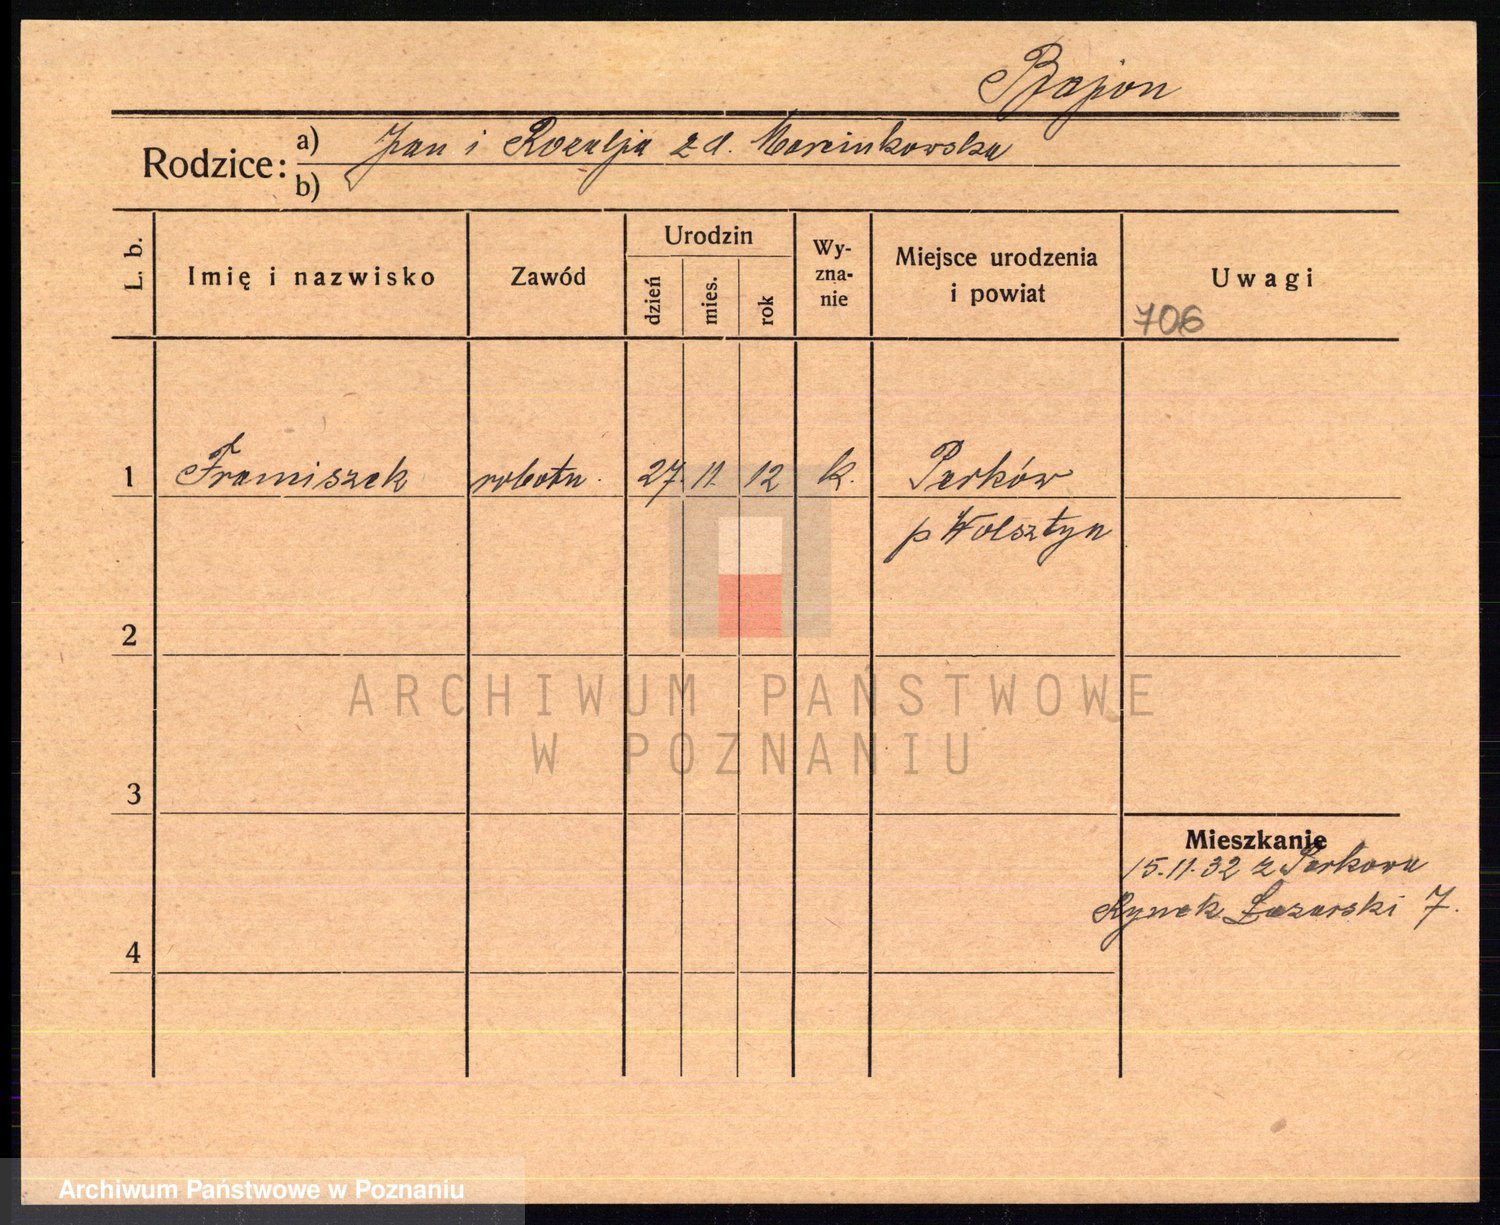 Bajon
Rodzice: a) Jan i Rozalja z d. Marcinkowska
b)
L. b.
Imię i nazwisko
Zawód
Urodzin
dzień
mies.
rok
Wy-
zna-
nie
Miejsce urodzenia
i powiat
Uwagi
706
1 Franciszek robotn. 27. 11. 12 k. Perków
p Wolsztyn
2
3
Mieszkanie
15.11.32 z Perkowa
Rynek Łazarski 7.
4
ARCHIWUM PAŃSTWOWE
W POZNANIU
Archiwum Państwowe w Poznaniu